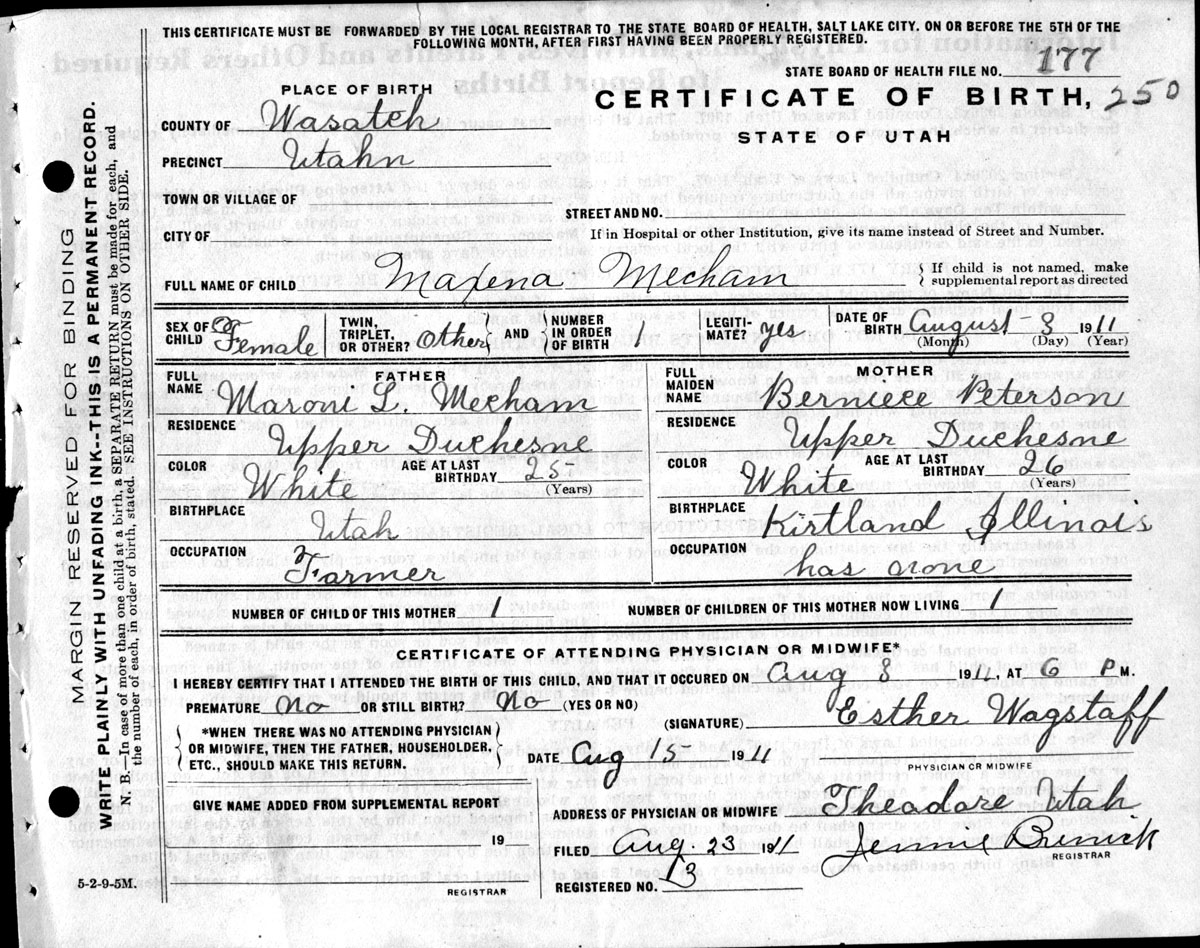 THIS CERTIFICATE MUST BE FORWARDED BY THE LOCAL REGISTRAR TO THE STATE BOARD OF HEALTH, SALT LAKE CITY. ON OR BEFORE THE 5TH OF THE
FOLLOWING MONTH, AFTER FIRST HAVING BEEN PROPERLY REGISTERED.
STATE BOARD OF HEALTH FILE NO. 177
PLACE OF BIRTH
CERTIFICATE OF BIRTH, 250
STATE OF UTAH
COUNTY OF Wasatch
PRECINCT Utahn
TOWN OR VILLAGE OF
STREET AND NO.
CITY OF
If in Hospital or other Institution, give its name instead of Street and Number.
FULL NAME OF CHILD Maxena Mecham
If child is not named, make
supplemental report as directed
SEX OF CHILD Female
TWIN, TRIPLET, OR OTHER? Other
AND
NUMBER IN ORDER OF BIRTH 1
LEGITIMATE? yes
DATE OF BIRTH August 8 1911
(Month) (Day) (Year)
FATHER
FULL NAME Maroni L. Mecham
RESIDENCE Upper Duchesne
COLOR White AGE AT LAST BIRTHDAY 25
(Years)
BIRTHPLACE Utah
OCCUPATION Farmer
MOTHER
FULL MAIDEN NAME Berniece Peterson
RESIDENCE Upper Duchesne
COLOR White AGE AT LAST BIRTHDAY 26
(Years)
BIRTHPLACE Kirtland Illinois
OCCUPATION has none
NUMBER OF CHILD OF THIS MOTHER 1
NUMBER OF CHILDREN OF THIS MOTHER NOW LIVING 1
CERTIFICATE OF ATTENDING PHYSICIAN OR MIDWIFE*
I HEREBY CERTIFY THAT I ATTENDED THE BIRTH OF THIS CHILD, AND THAT IT OCCURED ON Aug 8 1911, AT 6 P M.
PREMATURE No OR STILL BIRTH? No (YES OR NO)
(SIGNATURE) Esther Wagstaff
PHYSICIAN OR MIDWIFE
*WHEN THERE WAS NO ATTENDING PHYSICIAN
OR MIDWIFE, THEN THE FATHER, HOUSEHOLDER,
ETC., SHOULD MAKE THIS RETURN.
DATE Aug 15 1911
GIVE NAME ADDED FROM SUPPLEMENTAL REPORT
19
REGISTRAR
ADDRESS OF PHYSICIAN OR MIDWIFE Theodore Utah
FILED Aug. 23 1911 Jennie
REGISTRAR
REGISTERED NO. 13
5-2-9-5M.
MARGIN RESERVED FOR BINDING
WRITE PLAINLY WITH UNFADING INK--THIS IS A PERMANENT RECORD.
N. B. In case of more than one child at a birth, a SEPARATE RETURN must be made for each, and
the number of each, in order of birth, stated. SEE INSTRUCTIONS ON OTHER SIDE.